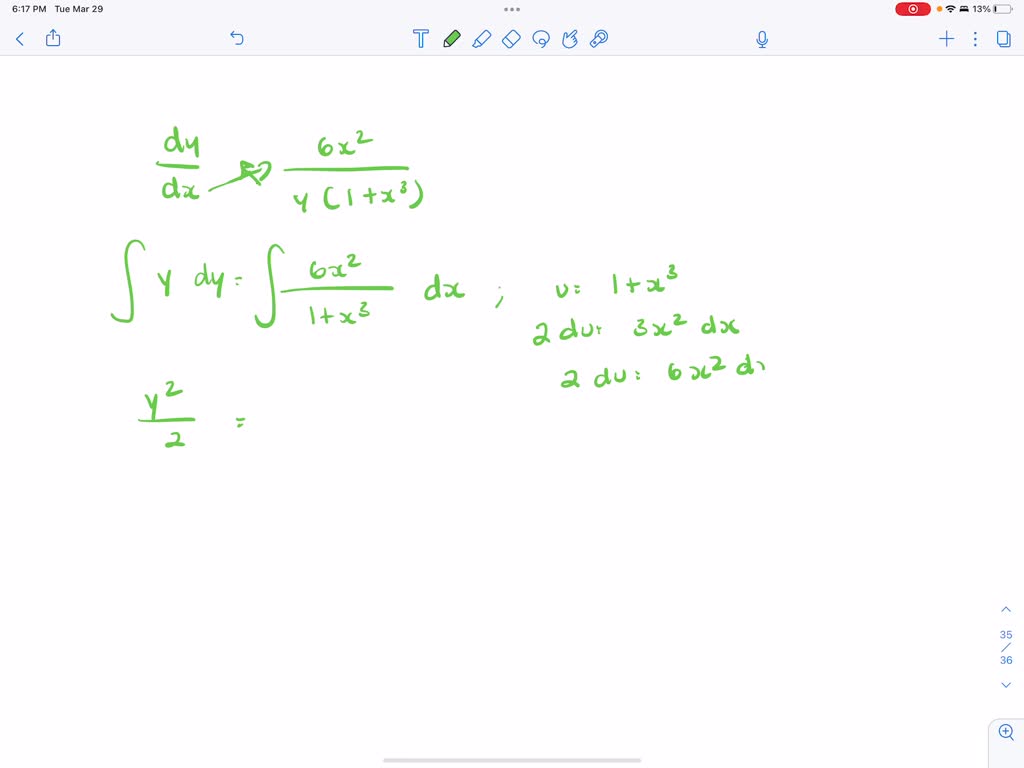 6:17 PM Tue Mar 29
13%
T
dy/dx = 6x²/y(1+x³)
∫ y dy = ∫ 6x²/1+x³ dx ; u = 1+x³
2 du = 3x² dx
2 du = 6x² dx
y²/2 =
35
/
36